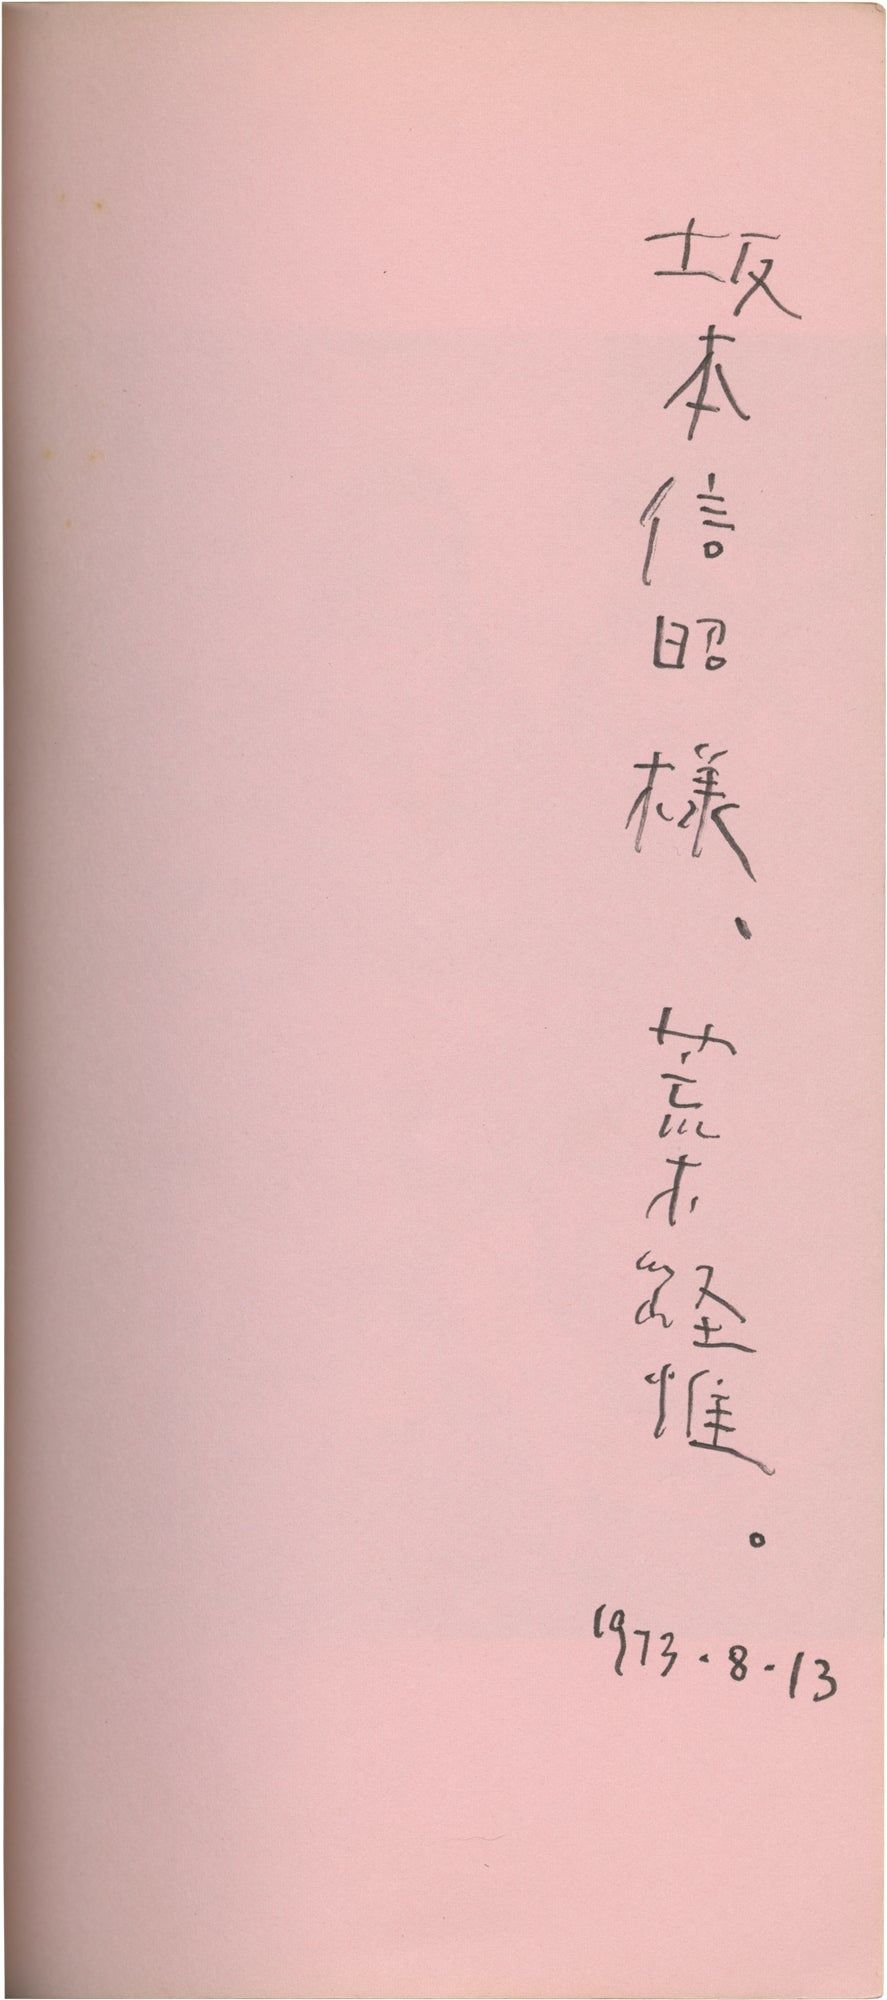 坂本信昭様．荒木経惟。
1973.8.13